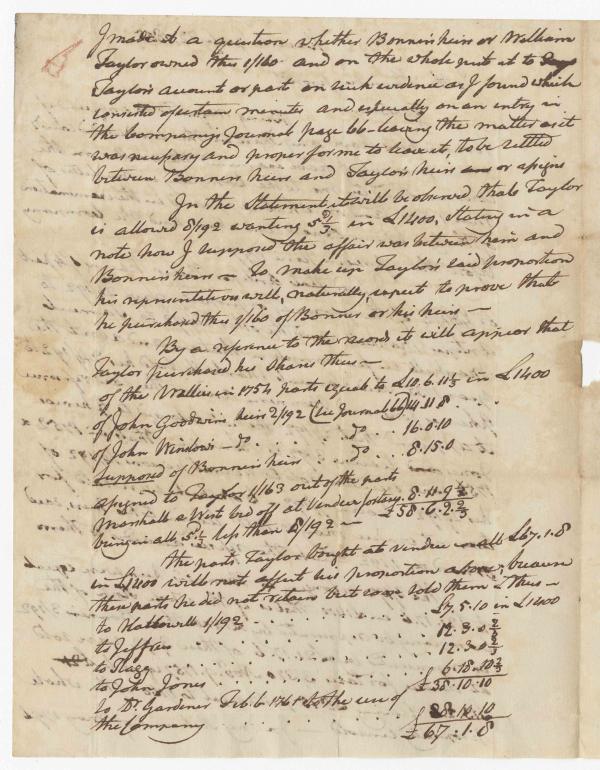 I made it a question whether Bonners heirs or William
Taylor owned this 1/160 and on the whole put it to
Taylors account or part on such evidence as I found which
consisted of certain minutes and especially on an entry in
the Company's Journal page 66 – leaving the matter as it
was necessary and proper for me to leave it, to be settled
between Bonners heirs and Taylor's heirs or assigns
In the Statement, it will be observed that Taylor
is allowed 8/192 wanting 5d 1/3 in £1400, stating in a
note how I supposed the affair was between him and
Bonners heirs – To make up Taylor's said proportion
his representatives will, naturally, expect to prove that
he purchased this 1/160 of Bonner or his heirs –
By a reference to the records it will appear that
Taylor purchased his shares thus –
of the Wallies in 1754 parts equal to £10.6.11 1/3 in £1400
of John Goodwins heirs 2/192 (see Journal 66) 14.11.8
of John Windows – do . . . . do . . 16.0.10
supposed of Bonners heirs . . . do . . 8.15.0
assigned to Taylor 1/163 out of the parts
Marshall & West bid off at Vendue 8.11.9 1/3
being in all 5d 1/3 less than 8/192 – £58.6.2 2/3
The parts Taylor bought at vendue £67.1.8
in £1400 will not affect his proportion because
these parts he did not retain but sold them Thus –
to Hallowell 1/192 . . . . £7.5.10 in £1400
to Jeffries . . . . 12.3.0 2/3
to Flagg . . . . 12.3.0 2/3
to John Jones . . . . 6.18.10 2/3
£38.10.10
to Dr. Gardiner Feb. 6 1761 to the use of
the Company 28.10.10
£67.1.8